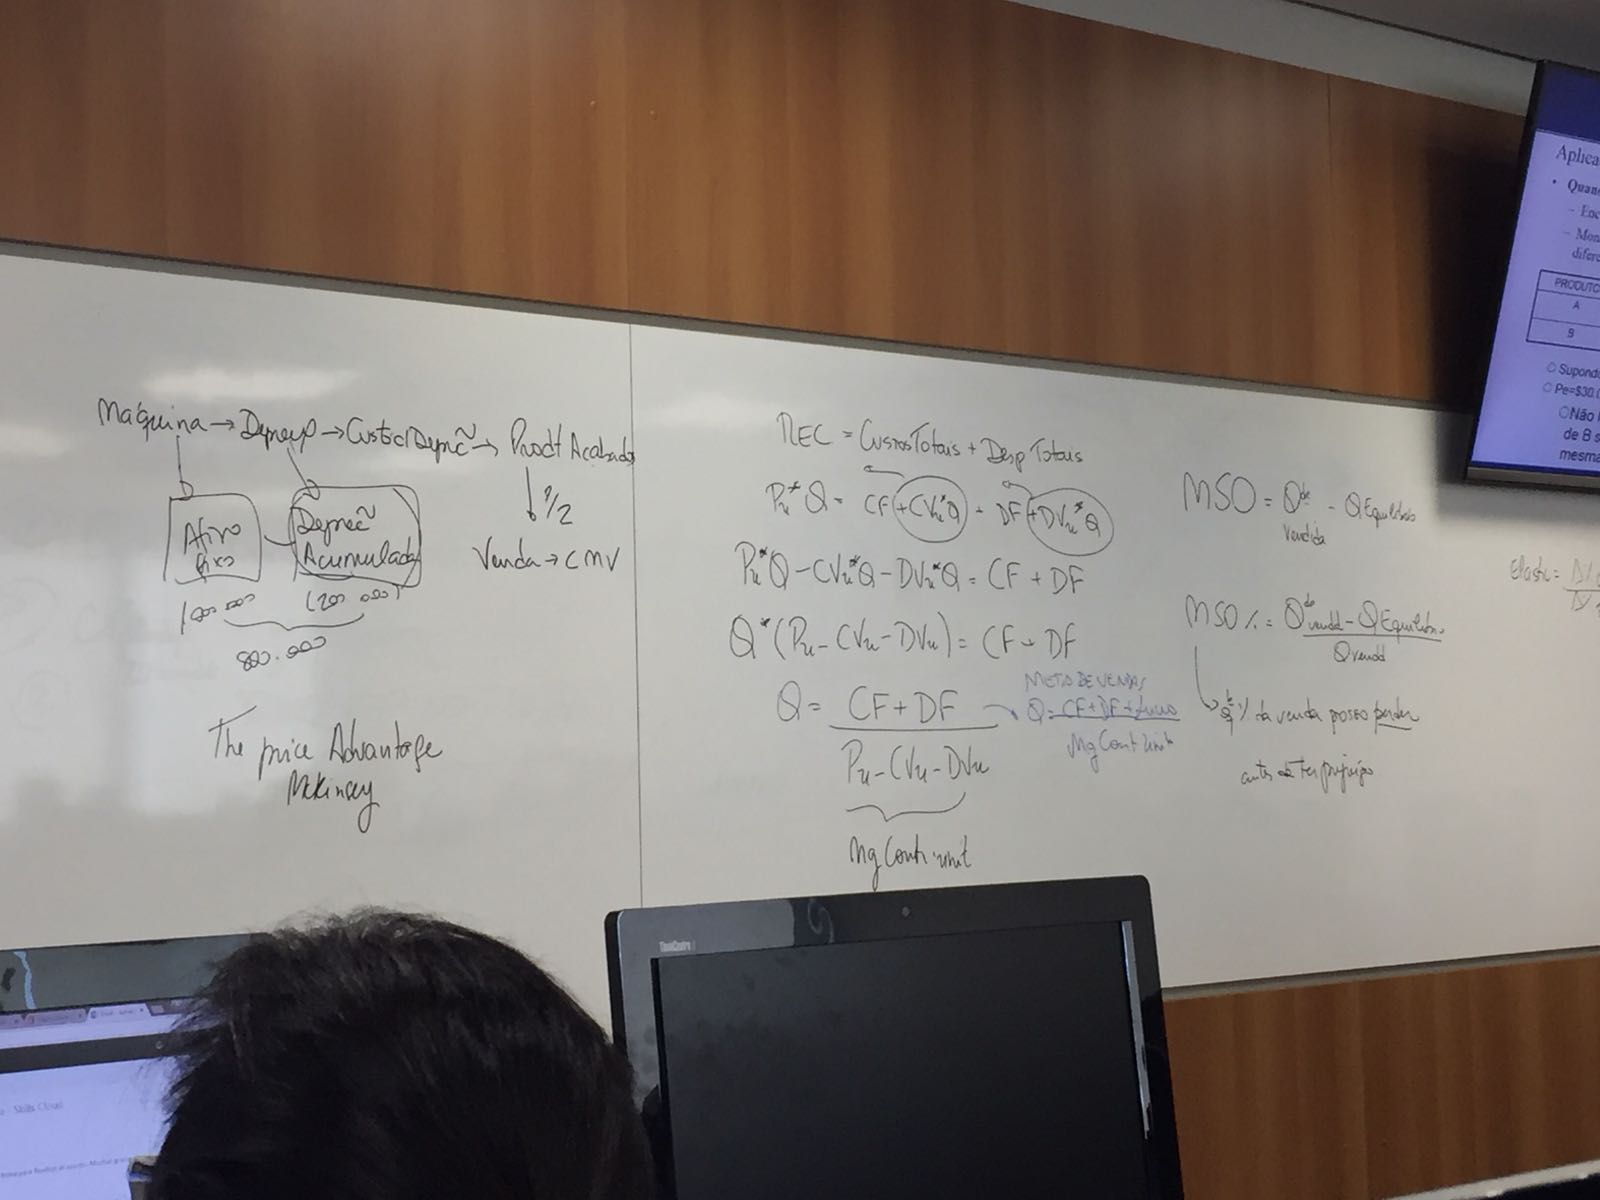 Máquina → Depreç → Custo c/ Depreç → Prodt Acabado
Ativo
fixo
Depreç
Acumulada
1/2
Venda → CMV
(200.000)
800.000
The price Advantage
McKinsey
REC = Custos Totais + Desp Totais
Pu*Q = CF + CVu*Q + DF + DVu*Q
Pu*Q - CVu*Q - DVu*Q = CF + DF
Q*(Pu - CVu - DVu) = CF + DF
Q = CF + DF
Pu - CVu - DVu
Mg Contr unit
META DE VENDAS
Q = CF + DF + Lucro
Mg Cont Unit
MSO = Qde vendida - Q Equilíbrio
MSO % = Qde vendd - Q Equilíbrio
Q vendd
% da venda posso perder
antes de ter prejuízo
Elastic =
Aplica
• Quan
– Enc
– Mon
difere
PRODUTO
A
B
Supondo
Pe=$30.
Não
de B s
mesma
ThinkCentre
Skills Cloud